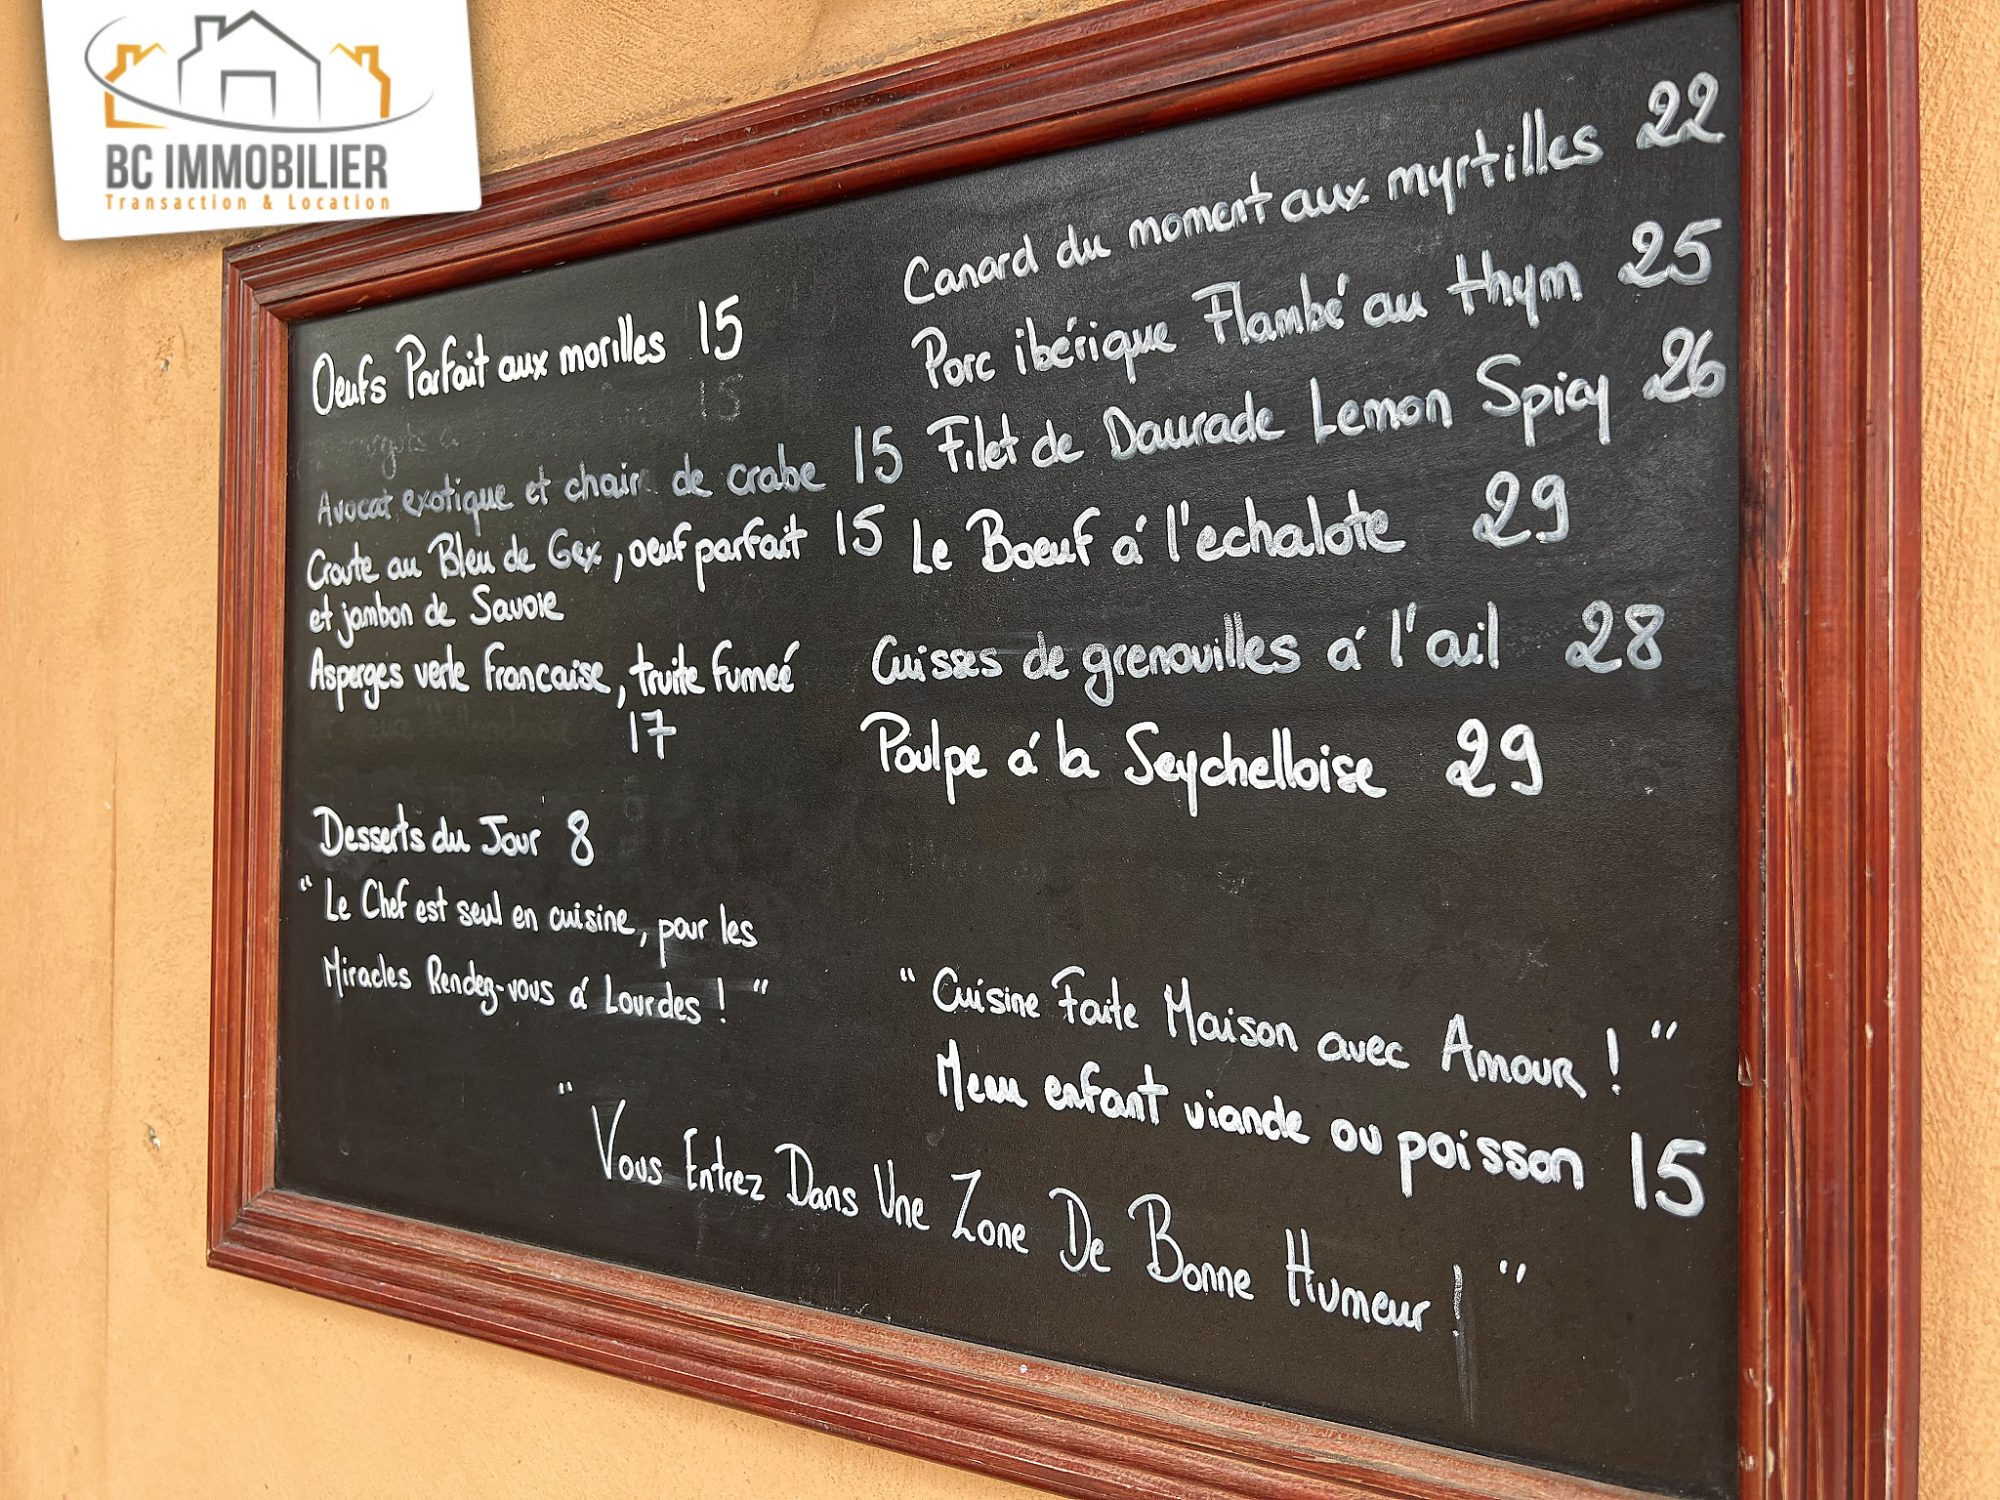 BC IMMOBILIER
Transaction & Location
Oeufs Parfait aux morilles 15
15
Avocat exotique et chair de crabe 15
Croute au Bleu de Gex, oeuf parfait 15
et jambon de Savoie
Asperges verte Francaise, truite fumeé
17
Desserts du Jour 8
" Le Chef est seul en cuisine, pour les
Miracles Rendez-vous á Lourdes ! "
Canard du moment aux myrtilles 22
Porc ibérique Flambé au thym 25
Filet de Daurade Lemon Spicy 26
Le Boeuf á l'echalote 29
Cuisses de grenouilles á l'ail 28
Poulpe á la Seychelloise 29
" Cuisine Faite Maison avec Amour ! "
Menu enfant viande ou poisson 15
" Vous Entrez Dans Une Zone De Bonne Humeur ! "